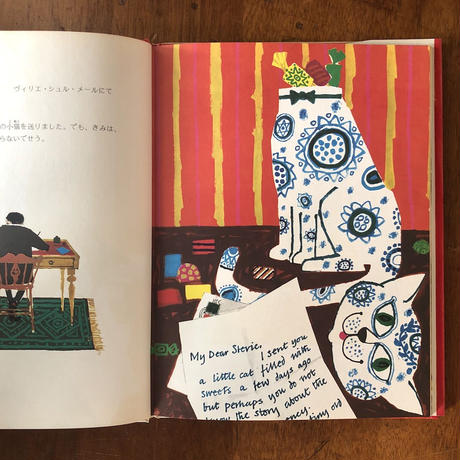 ヴィリエ・シュル・メールにて
の小猫を送りました。でも、きみは、
らないでせう。
My Dear Stevie,
I sent you
a little cat filled with
sweets a few days ago
but perhaps you do not
know the story about the
ency.
tiny old